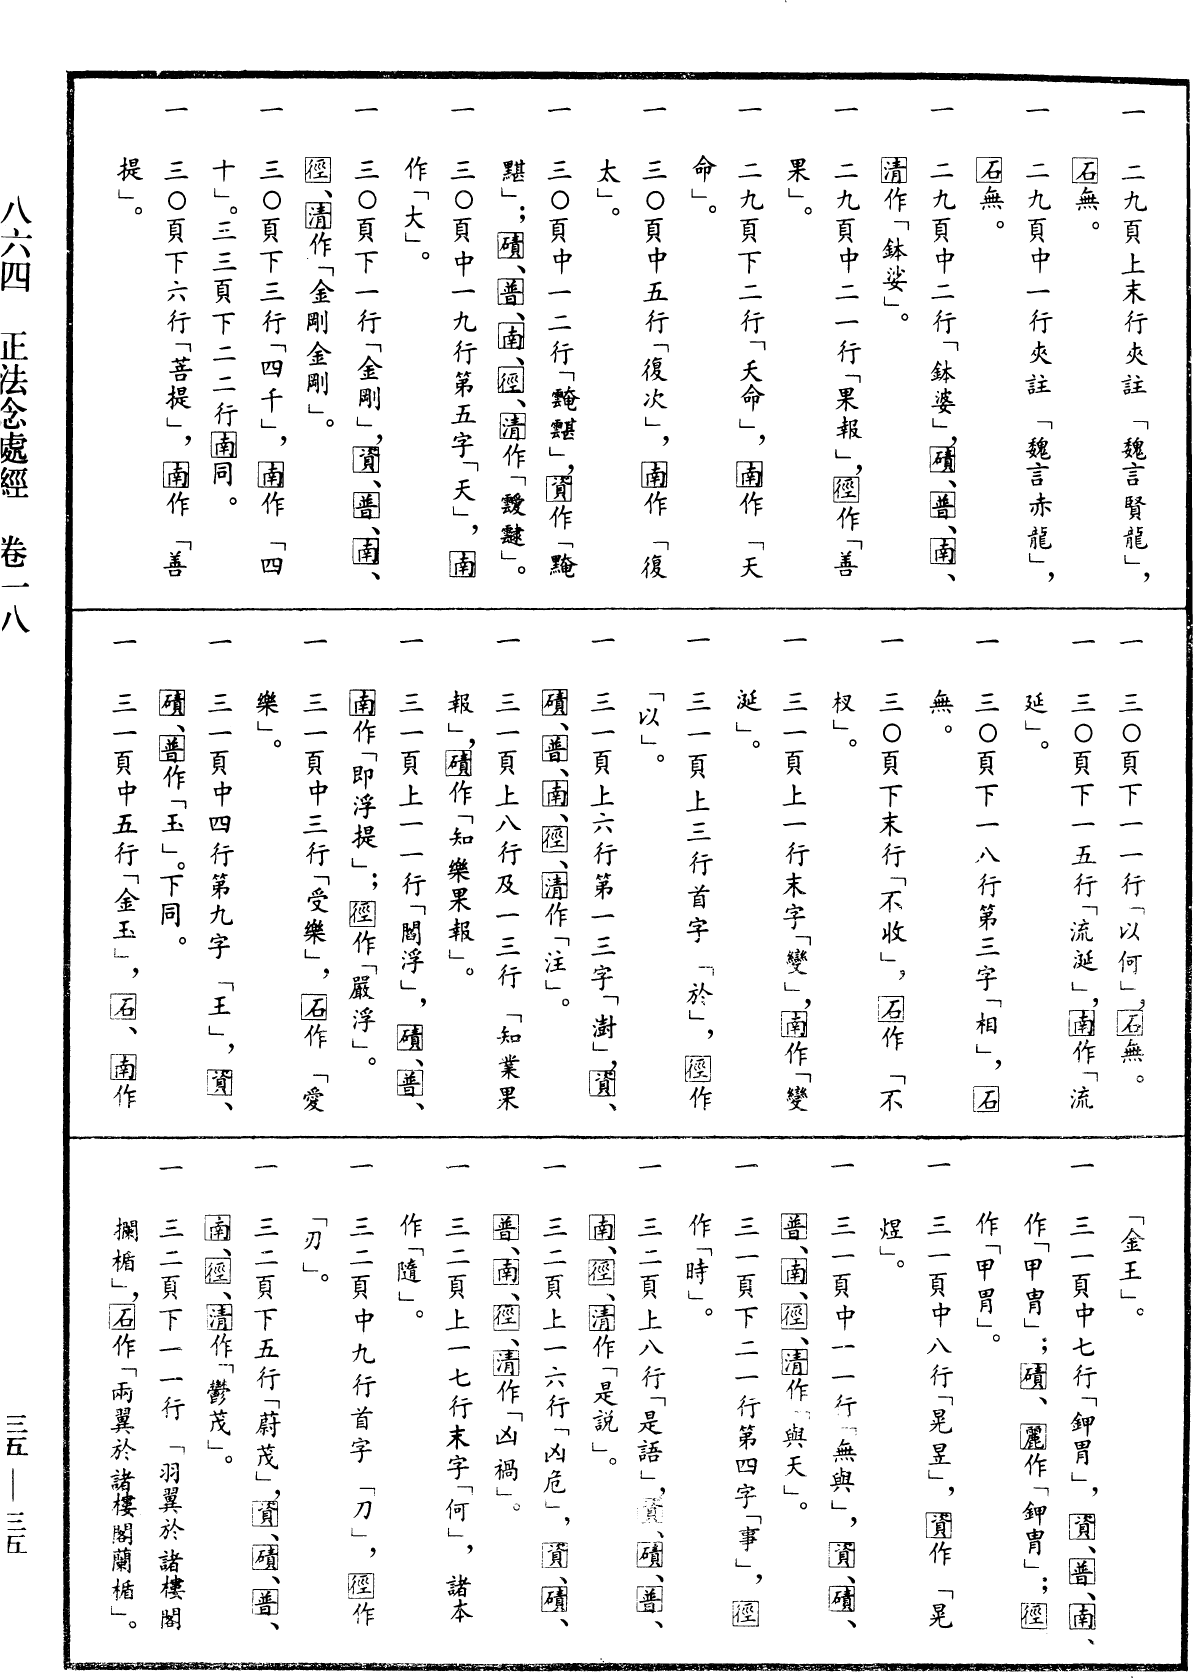 一　二九頁上末行夾註「魏言賢龍」，
石無。
一　二九頁中一行夾註「魏言赤龍」，
石無。
一　二九頁中二行「鉢婆」，磧、普、南、
清作「鉢娑」。
一　二九頁中二一行「果報」，徑作「善
果」。
一　二九頁下二行「夭命」，南作「天
命」。
一　三〇頁中五行「復次」，南作「復
太」。
一　三〇頁中一二行「䨴䨢」，資作「黤
黮」；磧、普、南、徑、清作「靉靆」。
一　三〇頁中一九行第五字「天」，南
作「大」。
一　三〇頁下一行「金剛」，資、普、南、
徑、清作「金剛金剛」。
一　三〇頁下三行「四千」，南作「四
十」。三三頁下二二行南同。
一　三〇頁下六行「菩提」，南作「善
提」。
一　三〇頁下一一行「以何」，石無。
一　三〇頁下一五行「流涎」，南作「流
延」。
一　三〇頁下一八行第三字「相」，石
無。
一　三〇頁下末行「不收」，石作「不
杈」。
一　三一頁上一行末字「變」，南作「變
涎」。
一　三一頁上三行首字「於」，徑作
「以」。
一　三一頁上六行第一三字「澍」，資、
磧、普、南、徑、清作「注」。
一　三一頁上八行及一三行「知業果
報」，磧作「知樂果報」。
一　三一頁上一一行「閻浮」，磧、普、
南作「即浮提」；徑作「嚴浮」。
一　三一頁中三行「受樂」，石作「愛
樂」。
一　三一頁中四行第九字「王」，資、
磧、普作「玉」。下同。
一　三一頁中五行「金玉」，石、南作
「金王」。
一　三一頁中七行「鉀胃」，資、普、南、
作「甲冑」；磧、麗作「鉀冑」；徑
作「甲胃」。
一　三一頁中八行「晃昱」，資作「晃
煜」。
一　三一頁中一一行「無與」，資、磧、
普、南、徑、清作「與天」。
一　三一頁下二一行第四字「事」，徑
作「時」。
一　三二頁上八行「是語」，資、磧、普、
南、徑、清作「是説」。
一　三二頁上一六行「凶危」，資、磧、
普、南、徑、清作「凶禍」。
一　三二頁上一七行末字「何」，諸本
作「隨」。
一　三二頁中九行首字「刀」，徑作
「刃」。
一　三二頁下五行「蔚茂」，資、磧、普、
南、徑、清作「鬱茂」。
一　三二頁下一一行「羽翼於諸樓閣
攔楯」，石作「兩翼於諸樓閣蘭楯」。
八六四　正法念處經　卷一八
三五——三五